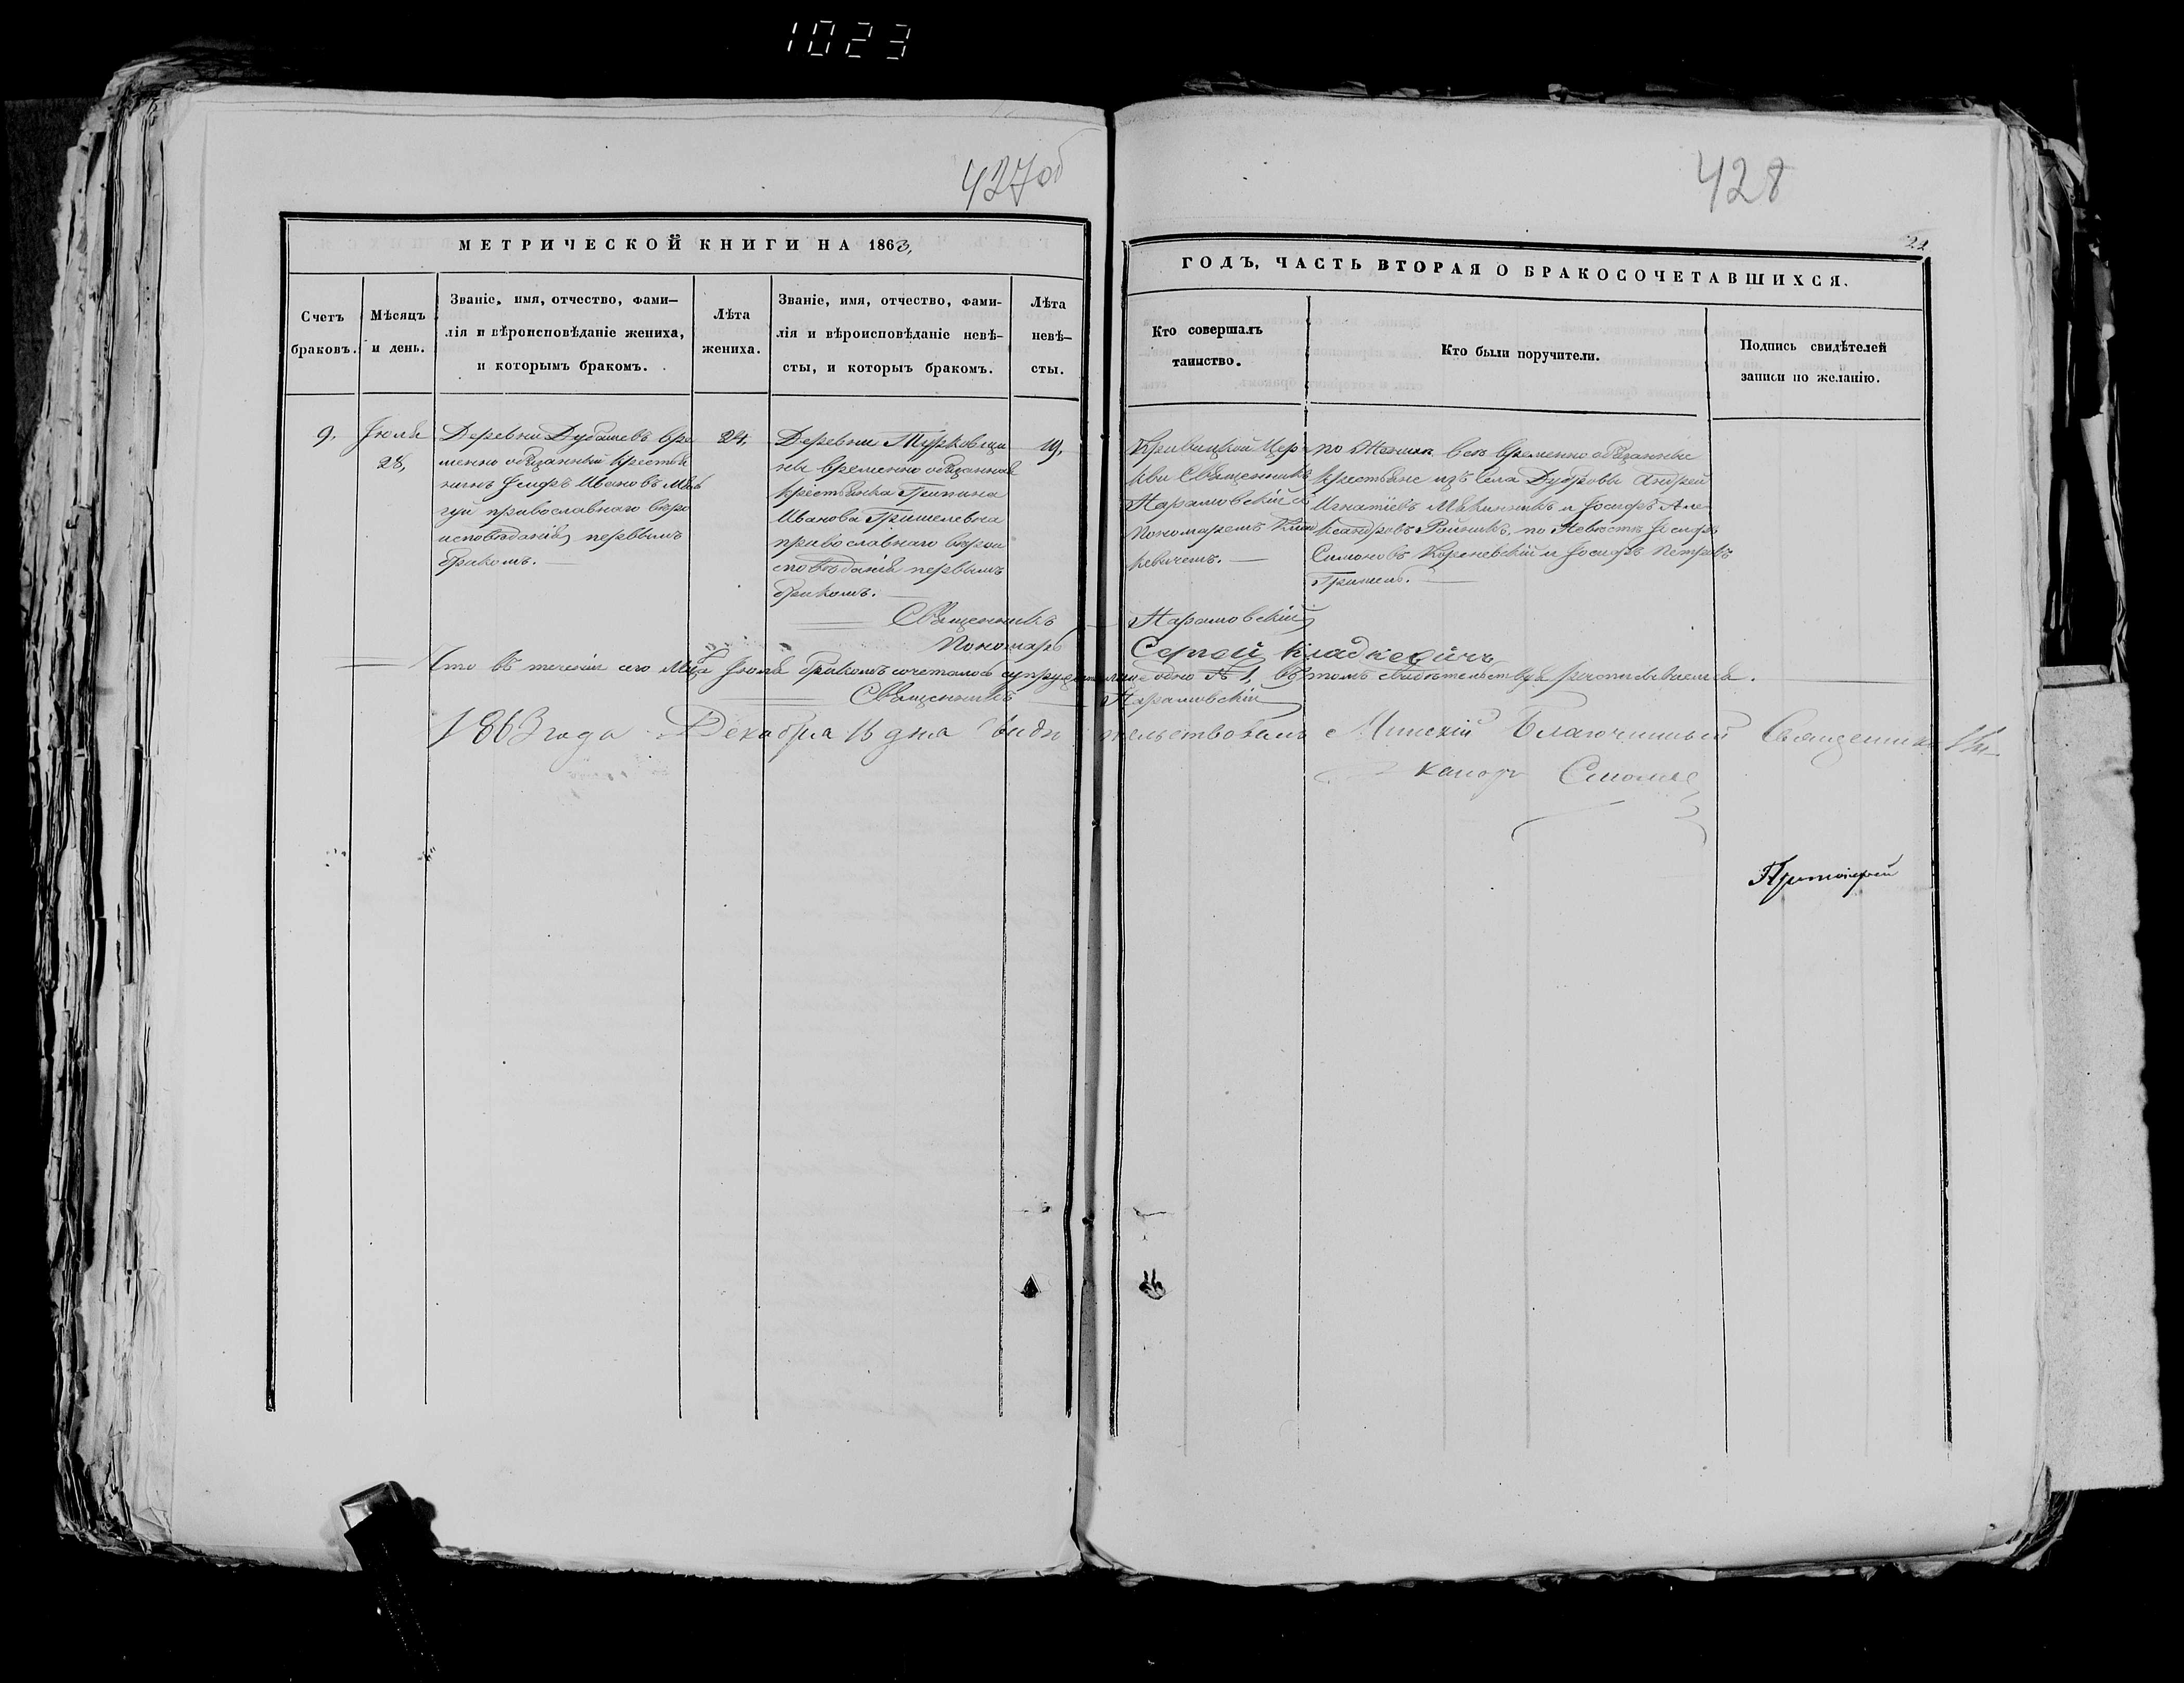 1023
427об
428
22
МЕТРИЧЕСКОЙ КНИГИ НА 1863,
ГОДЪ, ЧАСТЬ ВТОРАЯ О БРАКОСОЧЕТАВШИХСЯ.
Счетъ
браковъ.
Мѣсяцъ
и день.
Званіе, имя, отчество, фами-
лія и вѣроисповѣданіе жениха,
и которымъ бракомъ.
Лѣта
жениха.
Званіе, имя, отчество, фами-
лія и вѣроисповѣданіе невѣ-
сты, и которыъ бракомъ.
Лѣта
невѣ-
сты.
Кто совершалъ
таинство.
Кто были поручители.
Подпись свидѣтелей
записи по желанію.
9.
Іюля
28,
Деревни Дубашевъ вре
менно обязанный крестья
нинъ Іосифъ Ивановъ
православнаго вѣро
исповѣданія, первымъ
бракомъ.
24,
Деревни Турковщи
ны временно обязанная
крестьянка
Иванова Гришелевна
православнаго вѣрои
сповѣданія первымъ
бракомъ.
19,
Кривицкой Цер
кви Священникъ
Нарановскій съ
Пономаремъ Клад
кевичемъ.
по Женихѣ временно обязанные
крестьяне изъ села Дубровы Андрей
Игнатіевъ и Іосифъ Але
ксандровъ по Невѣстѣ Іосифъ
Симоновъ Кореневскій и Іосифъ Петровъ
Гришель.
Священникъ Нарановскій
Пономарь Сергѣй Кладкевичъ
Что въ теченіи сего Мѣсяца Іюля бракомъ сочеталось одно № 1, въ томъ свидѣтельствуя росписываемся.
Священникъ Нарановскій
1863 года Декабря 16 дня свидѣтельствовалъ Минскій Благочинный Священникъ Ни
каноръ Смоличъ
Протоіерей